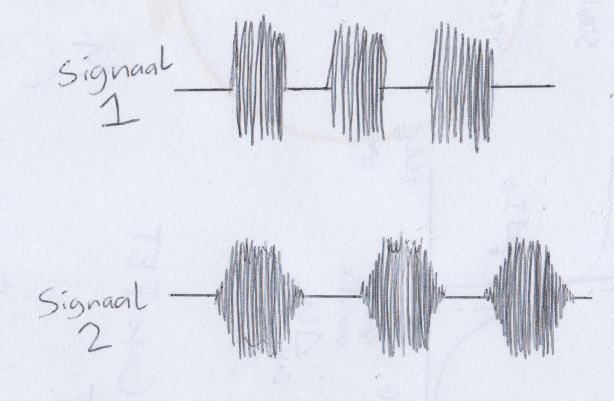 Signaal
1
Signaal
2